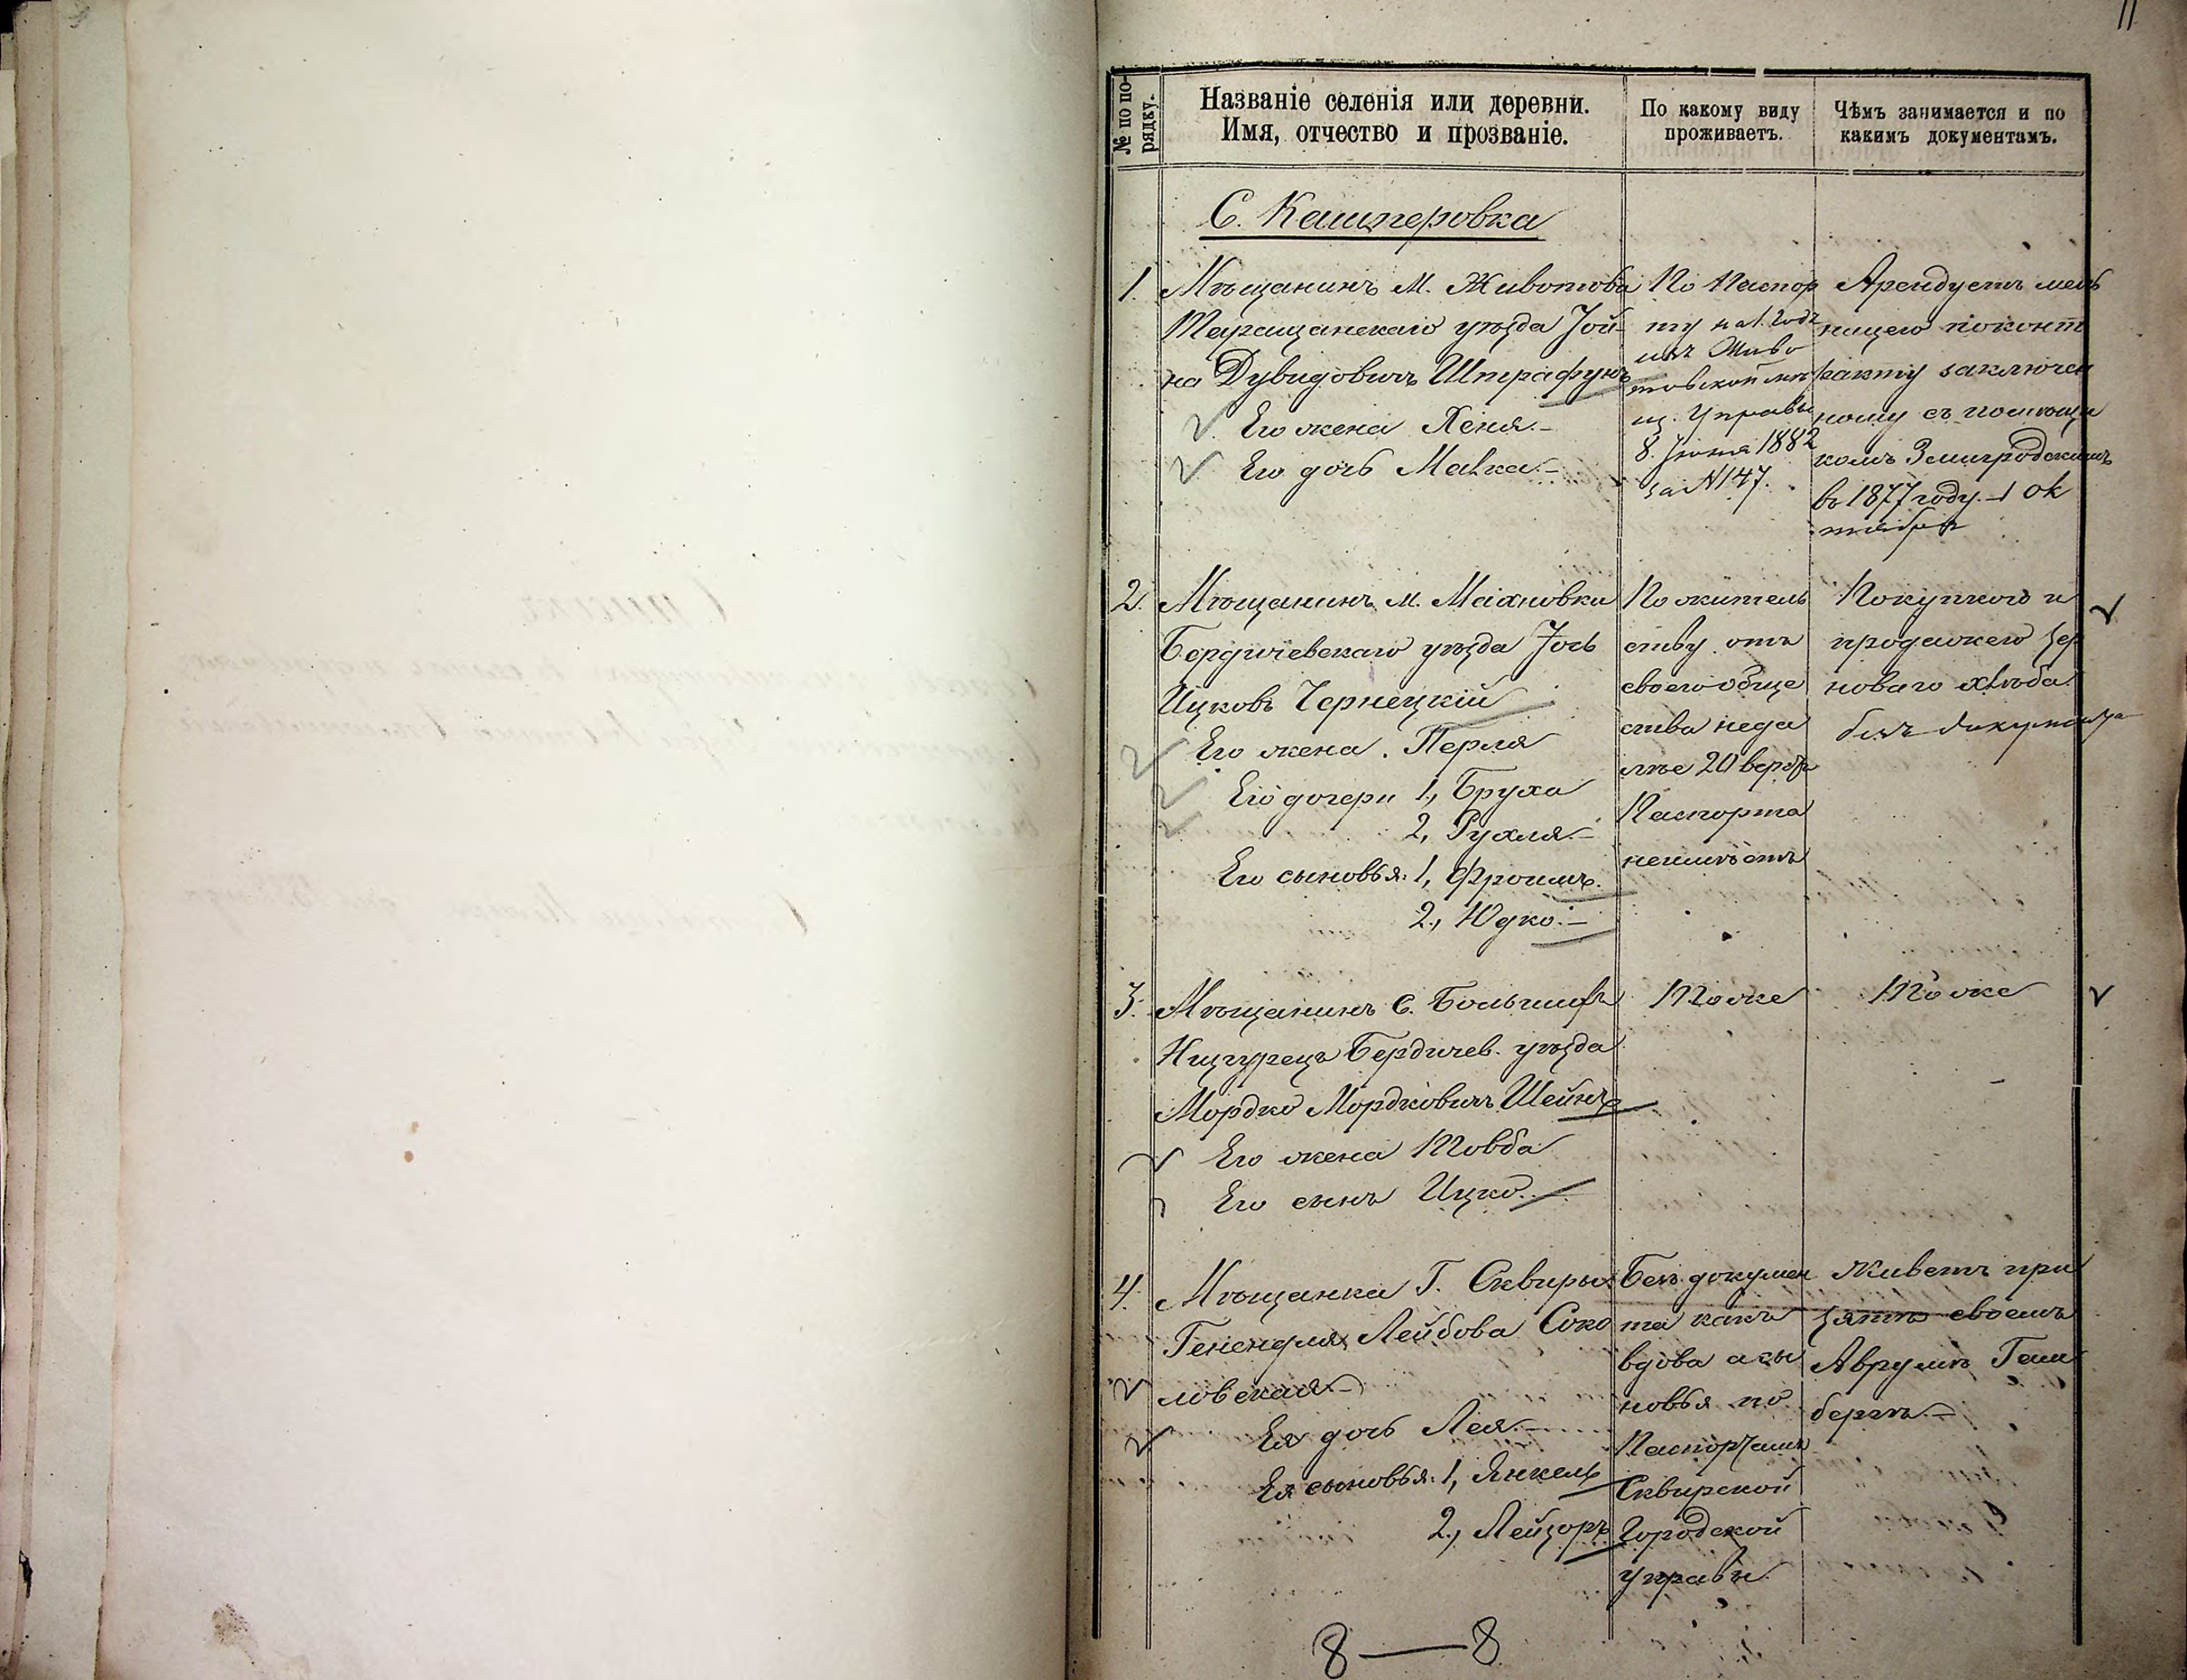 11
№ по по-
рядку.
Названіе селенія или деревни.
Имя, отчество и прозваніе.
По какому виду
проживаетъ.
Чѣмъ занимается и по
какимъ документамъ.
С. Кашперовка
1. Мѣщанинъ М. Животова
Таращанскаго уѣзда Іой-
на Дувидовичъ Штрафунъ
Его жена Хеня.-
Его дочь Малка.-
По Паспор
ту на 1. годъ
изъ Живо
товской мѣ
щ. Управы
8. Іюня 1882
за № 147.
Арендуетъ мель
ницею поконт
ракту заключен
ному съ помѣщи
комъ Земигродскимъ
въ 1877 году. 1 ок
тября
2. Мѣщанинъ м. Махновки
Бердичевскаго уѣзда Іось
Ицковъ Чернецкій
Его жена. Перля
Его дочери 1, Бруха
2, Рухля.-
Его сыновья: 1, Фроимъ.
2, Юдко.-
По житель
ству отъ
своего обще
ства неда
лѣе 20 верстъ
Паспорта
неимѣетъ
Покупкою и
продажею зер
новаго хлѣба.
безъ документа
3. Мѣщанинъ С. Большихъ
Низгурецъ Бердичев. уѣзда
Мордко Мордковичъ Шейнъ
Его жена Товба
Его сынъ Ицко.
Тоже
Тоже
4. Мѣщанка Г. Сквиры
Генендля Лейбова Соко
ловская-
Ея дочь Лея.-
Ея сыновья: 1, Янкель
2, Лейзоръ
Безъ докумен
та какъ
вдова а сы
новья по
Паспортамъ
Сквирской
Городской
управы.
Живетъ при
зятѣ своемъ
Аврумѣ Гем
бергъ.-
8 — 8